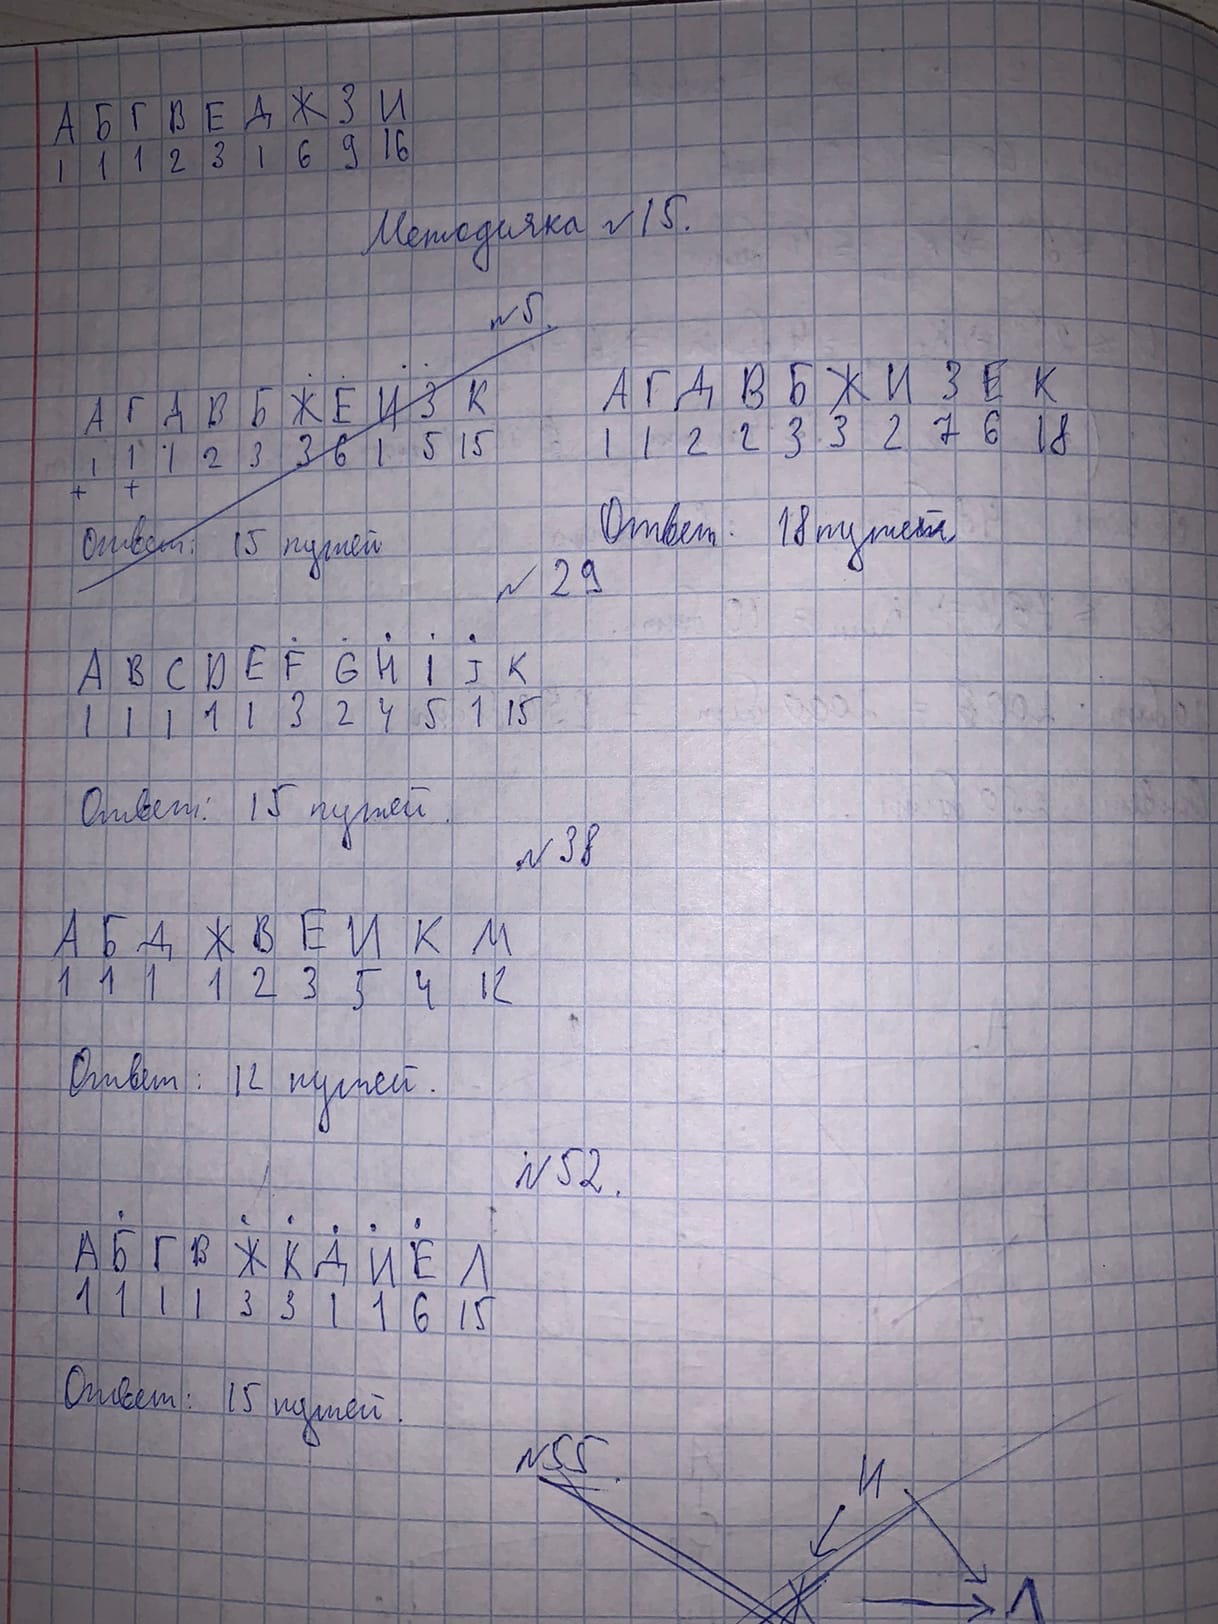 А Б Г В Е Д Ж З И
1 1 1 2 3 1 6 9 16
Методичка №15.
№5.
А Г Д В Б Ж Е И З К
1 1 1 2 3 3 6 1 5 15
+ +
Ответ: 15 путей
А Г Д В Б Ж И З Е К
1 1 2 2 3 3 2 7 6 18
Ответ: 18 путей
№29
A B C D E F G H I J K
1 1 1 1 1 3 2 4 5 1 15
Ответ: 15 путей.
№38
А Б Д Ж В Е И К М
1 1 1 1 2 3 5 4 12
Ответ: 12 путей.
№52.
А Б Г В Ж К Д И Е Л
1 1 1 1 3 3 1 1 6 15
Ответ: 15 путей.
№55.
И
Л